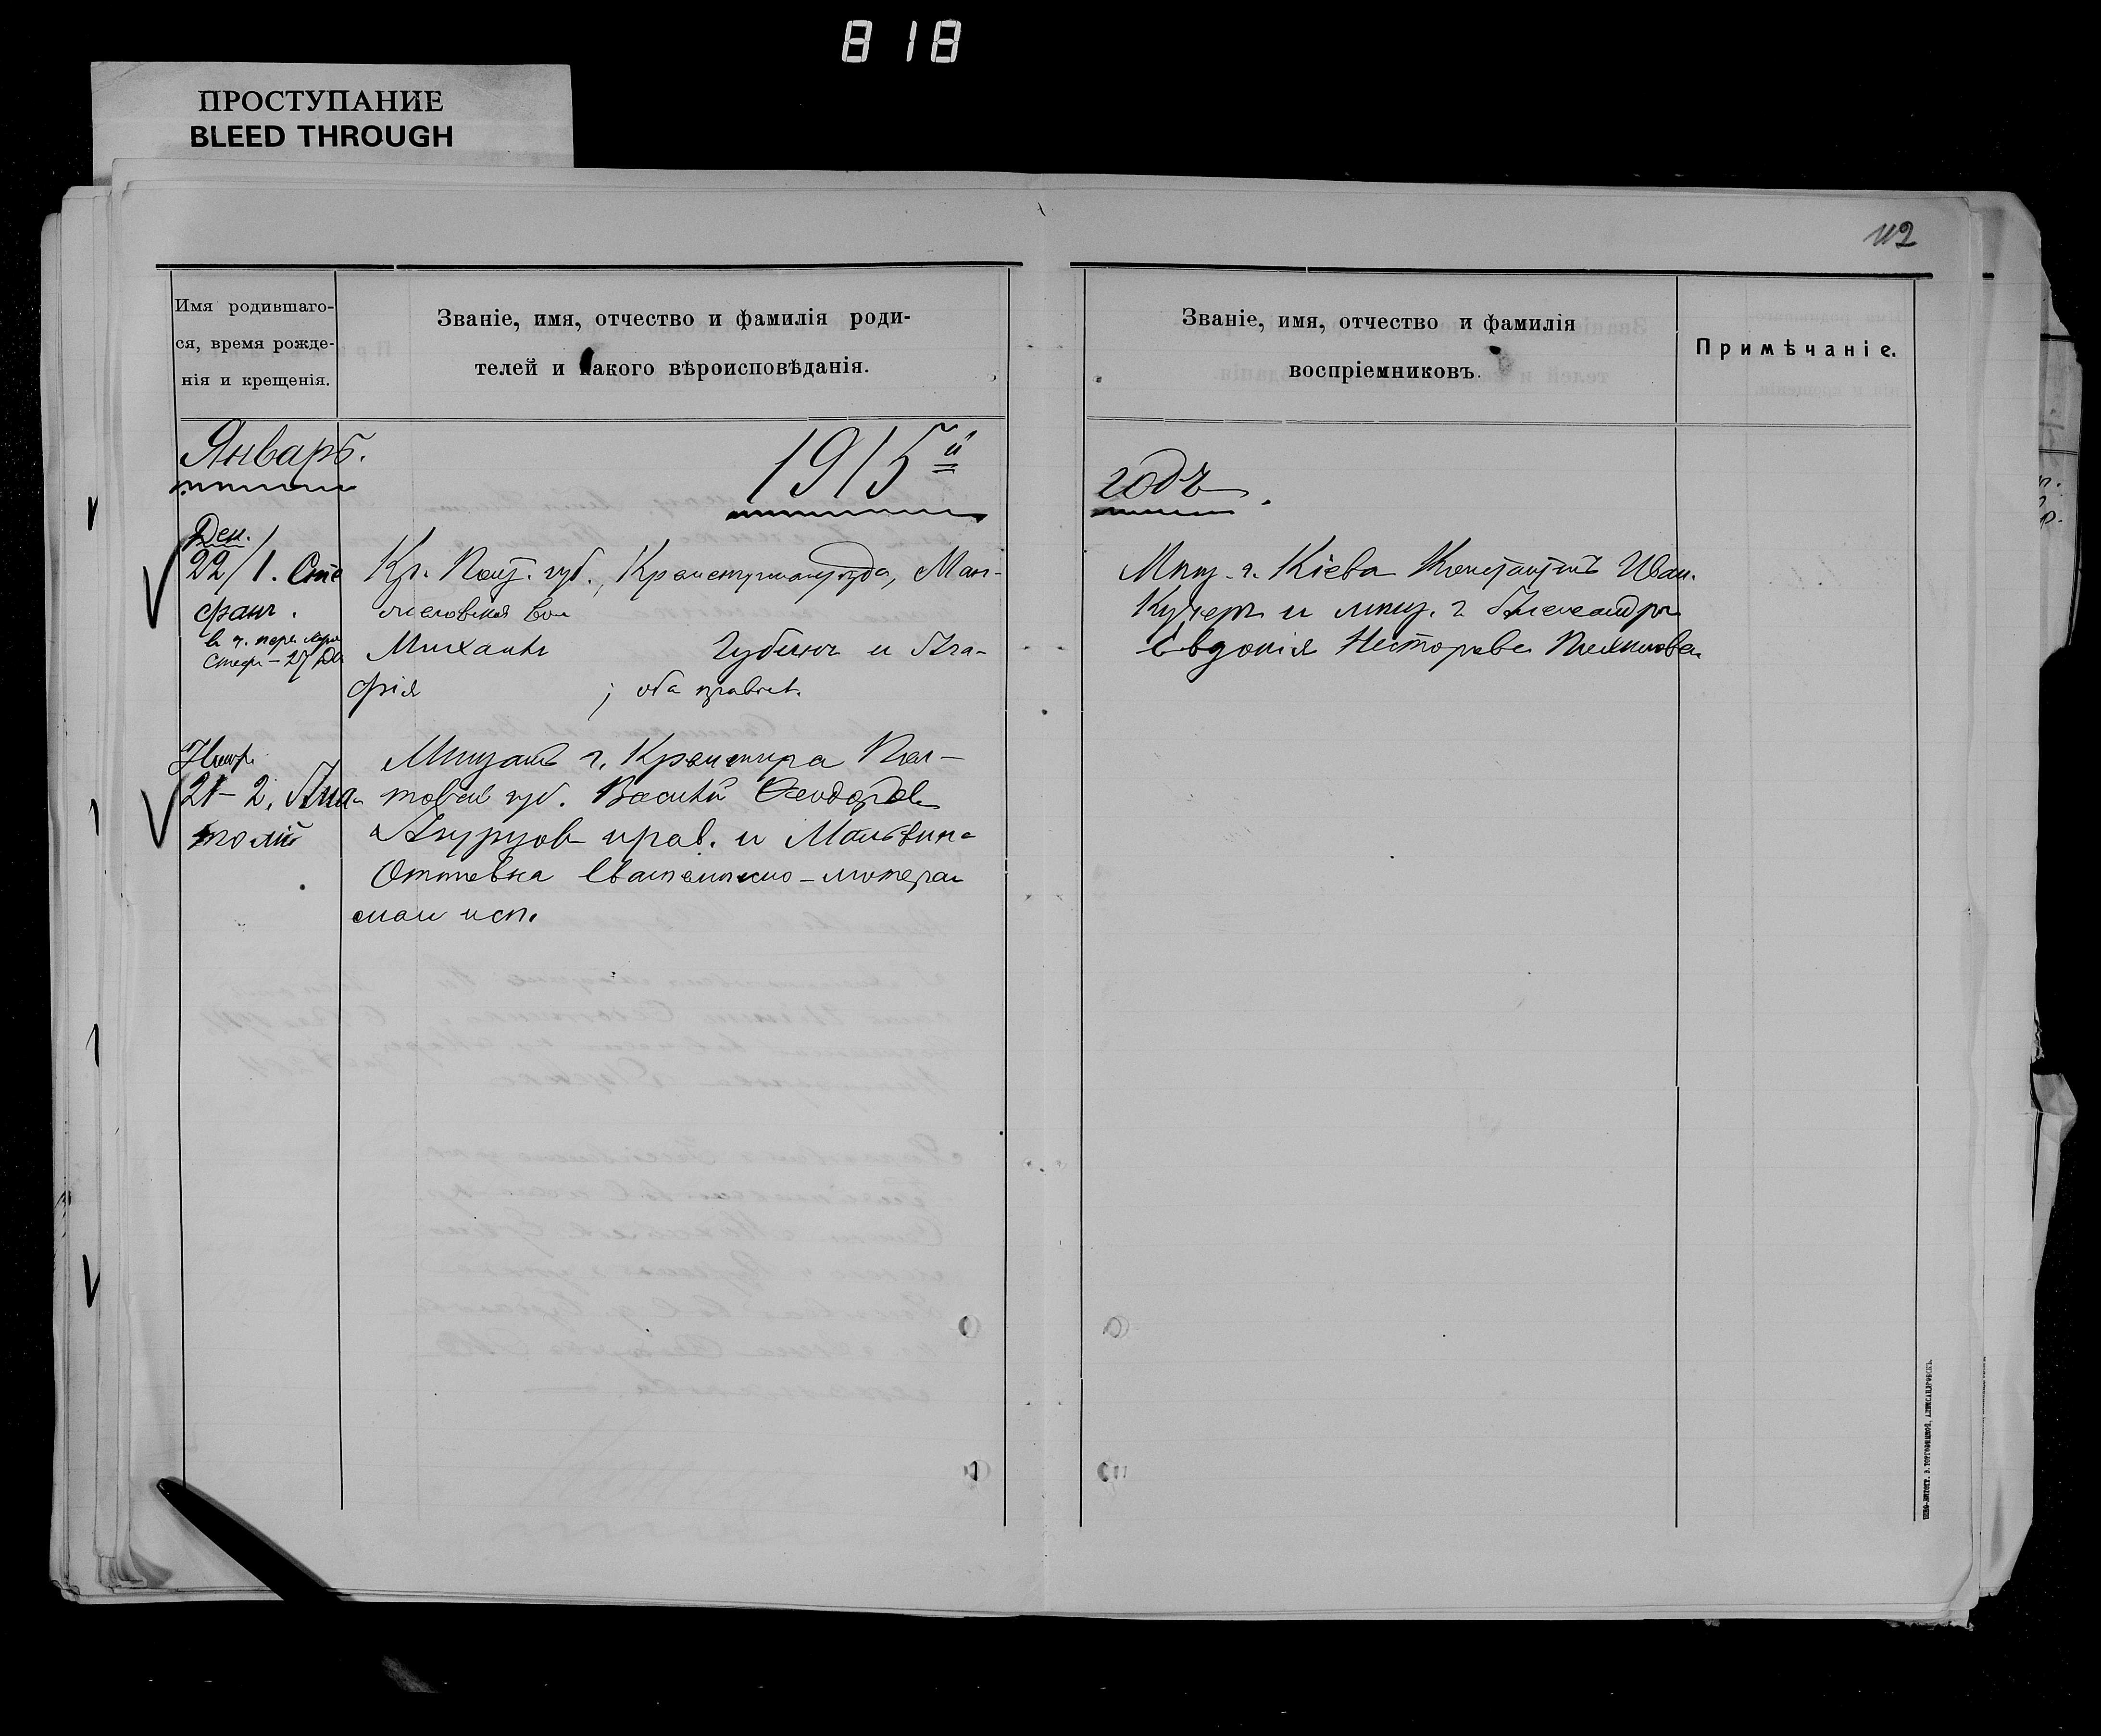 818
ПРОСТУПАНИЕ
BLEED THROUGH
112
Имя родившаго-
ся, время рожде-
нія и крещенія.
Званіе, имя, отчество и фамилія роди-
телей и какого вѣроисповѣданія.
Званіе, имя, отчество и фамилія
воспріемниковъ.
Примѣчаніе.
Январь.
1915й
годъ.
Дек.
22/1. Сте
фанъ.
27 Дек
Кр. Полт. губ., Кременчуг уѣзда, Ман-
желеевская вол
Михаилъ Губинъ и Ага-
фія ; оба правосл.
Мѣщ. г. Кіева Константинъ Иван.
Кучеръ и мѣщ. г. Александр
Евдокія Несторова
Ноябр.
21-2. Ана-
толій
Мѣщанъ г. Кременчуга Пол-
тавск губ. Василій Феодоров
прав. и Мальвина
Оттовна Евангелическо-лютеран
скаго исп.